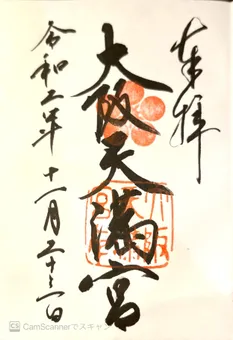 奉拝
大阪天満宮
令和二年十一月二十三日
CS CamScannerでスキャン